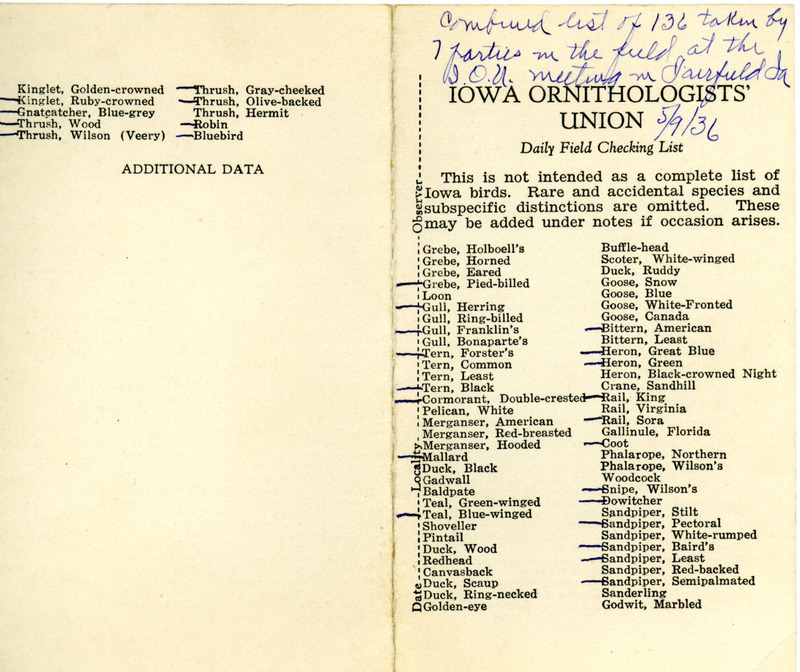 Kinglet, Golden-crowned
Kinglet, Ruby-crowned
Gnatcatcher, Blue-grey
Thrush, Wood
Thrush, Wilson (Veery)
Thrush, Gray-cheeked
Thrush, Olive-backed
Thrush, Hermit
Robin
Bluebird
ADDITIONAL DATA
Combined list of 136 taken by
7 parties in the field, at the
I.O.U. meeting in Fairfield Ia
5/9/36
IOWA ORNITHOLOGISTS'
UNION
Daily Field Checking List
This is not intended as a complete list of
Iowa birds. Rare and accidental species and
subspecific distinctions are omitted. These
may be added under notes if occasion arises.
Date
Locality
Observer
Grebe, Holboell's
Grebe, Horned
Grebe, Eared
Grebe, Pied-billed
Loon
Gull, Herring
Gull, Ring-billed
Gull, Franklin's
Gull, Bonaparte's
Tern, Forster's
Tern, Common
Tern, Least
Tern, Black
Cormorant, Double-crested
Pelican, White
Merganser, American
Merganser, Red-breasted
Merganser, Hooded
Mallard
Duck, Black
Gadwall
Baldpate
Teal, Green-winged
Teal, Blue-winged
Shoveller
Pintail
Duck, Wood
Redhead
Canvasback
Duck, Scaup
Duck, Ring-necked
Golden-eye
Buffle-head
Scoter, White-winged
Duck, Ruddy
Goose, Snow
Goose, Blue
Goose, White-Fronted
Goose, Canada
Bittern, American
Bittern, Least
Heron, Great Blue
Heron, Green
Heron, Black-crowned Night
Crane, Sandhill
Rail, King
Rail, Virginia
Rail, Sora
Gallinule, Florida
Coot
Phalarope, Northern
Phalarope, Wilson's
Woodcock
Snipe, Wilson's
Dowitcher
Sandpiper, Stilt
Sandpiper, Pectoral
Sandpiper, White-rumped
Sandpiper, Baird's
Sandpiper, Least
Sandpiper, Red-backed
Sandpiper, Semipalmated
Sanderling
Godwit, Marbled